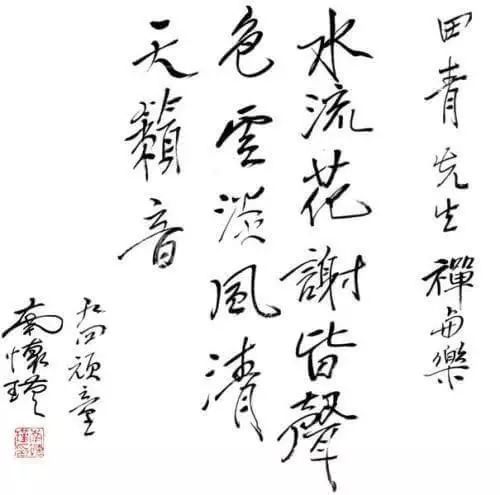 田青先生禪与樂
水流花謝皆聲
色雲淡風清
天籟音
九四頑童
南懷瑾